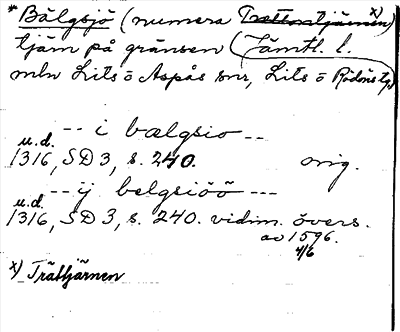 * Bälgsjö (numera Trättontjärnen) x)
tjärn på gränsen (Jämtl. l.
mln Lits o Aspås snr, Lits o Rödöns tg)
-- i bælgsio --
u.d.
1316, SD 3, s. 240. orig.
-- ij belgsiöö ---
u.d.
1316, SD 3, s. 240. vidim. övers.
av 1596.
4/6
x) Trättjärnen